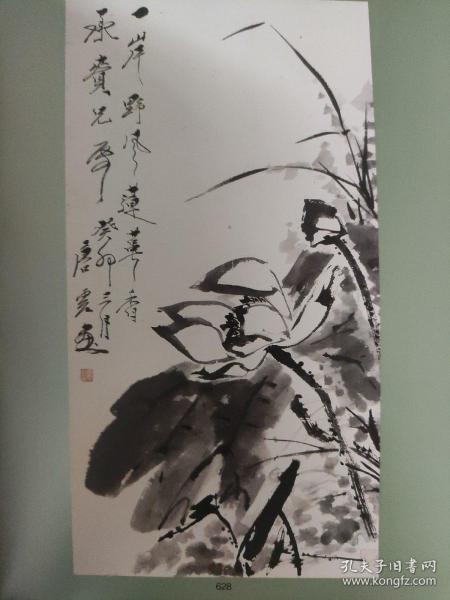 一岸野风莲萼香
承贵兄属 癸卯三月
唐云画
628
孔夫子旧书网
www.kongfz.com